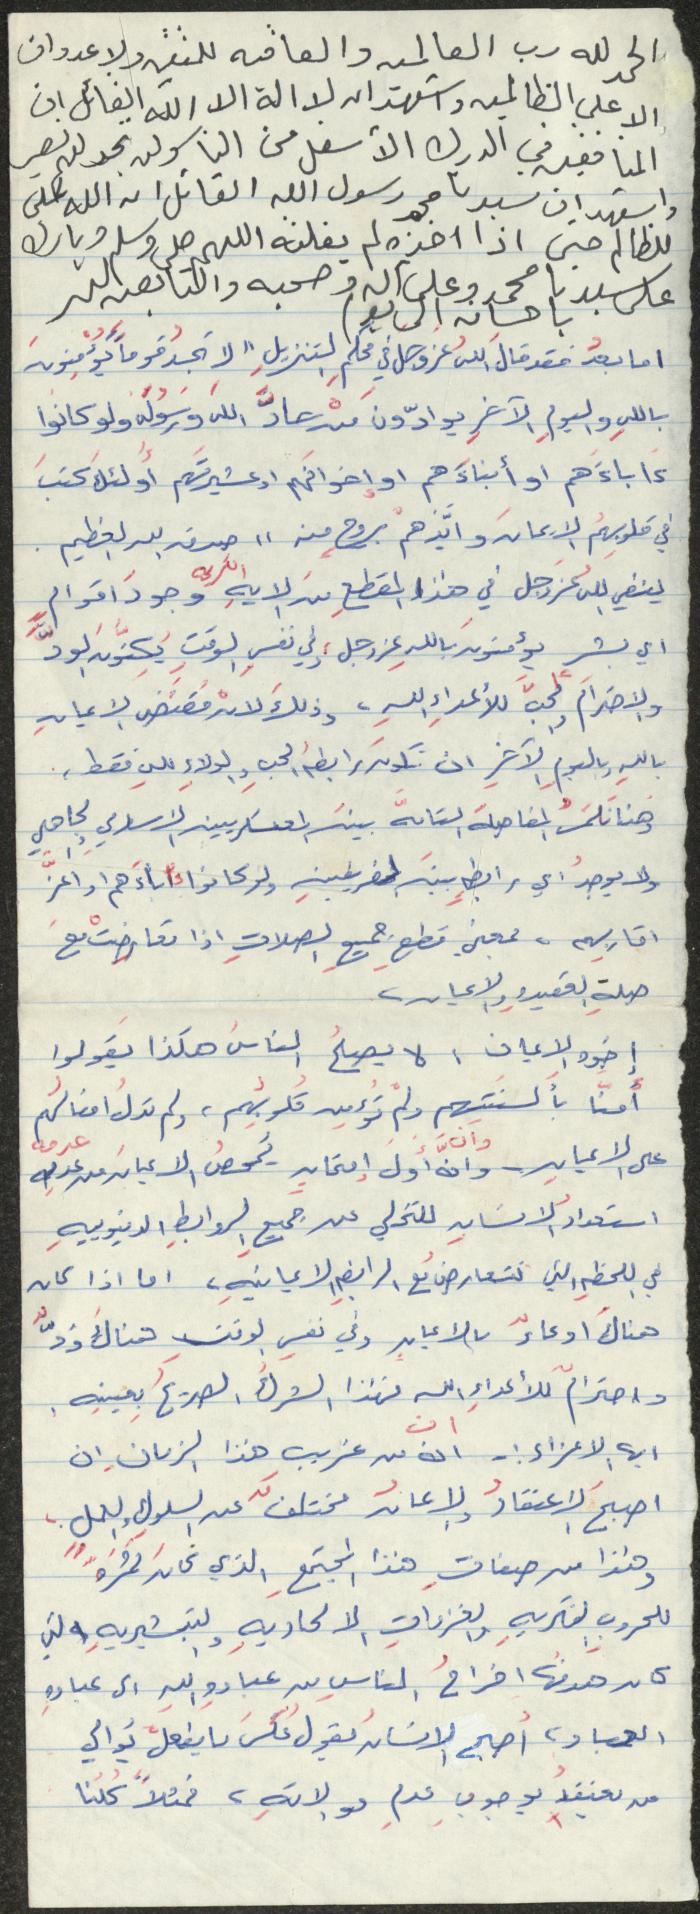 الحمد لله رب العالمين والعاقبه للمتقين ولا عدوان
الا علي الظالمين واشهد ان لا اله الا الله القائل ان
المنافقين في الدرك الأسفل من النار ولن تجد لهم نصير
واشهد ان سيدنا محمد رسول الله القائل ان الله يملى
للظالم حتى اذا اخذه لم يفلته اللهم صلي وسلم وبارك
على سيدنا محمد وعلى آله وصحبه والتابعين لهم
باحسان الى يوم
اما بعدُ فقد قال اللهُ عز وجل في محكمِ التنزيلِ " لا تجدُ قوماً يُؤمنونَ
باللهِ واليومِ الآخرِ يوادّون مَنْ حادَّ اللهَ ورَسُولَهُ ولو كانوا
ءاباءَهم او أبناءَهم او اخوانَهم او عشيرتَهم أولئك كتبَ
في قلوبِهمُ الايمانَ وأيَّدَهمْ بروحٍ منه " صدق الله العظيم .
ينفي اللهُ عزَ وجل في هذا المقطعِ من الايهِ الكريمه وجودَ اقوامٍ
اي بشر يؤمنونَ باللهِ عز وجل ، وفي نفسِ الوقتِ يُكِنُّونَ الودَّ
والاحترامَ والحبَّ للأعداءِ اللهِ ، وذلكَ لانْ مُقتَضَى الايمانِ
باللهِ وباليومِ الآخرِ ان تكونَ رابطةُ الحبِ والولاءِ للهِ فقط ،
وهنا تكمنُ المفاصلةُ التامةُ بينَ المعسكرين الاسلامي والجاهلي
ولا يوجدُ اي رابطٍ بينَ الفريقينِ ولو كانوا أباءَهم او اعزَّ
اقاربهم ، بمعنى قطعِ جميعِ الصلاتِ اذا تعارضتْ معَ
صلةِ العقيدهِ والايمان ،
إخوه الايمان ، لا يصلحُ الناسُ هكذا يقولوا
أمنّا بألسنَتِهم ولمْ تؤمِن قلوبُهم ، ولم تدلُ افعالُهم
على الايمانِ - وانَّ أولَ إمتحانٍ يُمحصُ الايمانَ من عدمه
استعدادُ الانسانِ للتخلي عن جميعِ الروابطِ الدنيويهِ
في اللحظهِ التي تتعارض مع الرابطهِ الايمانيهِ ، اما اذا كان
هناكَ ادعاءٌ بالايمانِ وفي نفسِ الوقتِ هناكَ وُدٌّ
واحترامٌ للأعداءِ اللهِ فهذا الشركُ الصريحُ بعينهِ .
ايها الاعزاء :- ان من غريب هذا الزمانِ ان
اصبحَ الاعتقادُ والايمانُ مختلفاً عن السلوكِ والعملِ ،
وهذا من صفاتِ هذا المجتمعِ الذي كانَ ثمرةً
للحروبِ الفكريهِ والغزواتِ الالحاديهِ والتبشيريهِ التي
كان هدفها اخراجُ الناسِ من عبادهِ اللهِ الى عبادهِ
العباد ، أصبح الانسانُ يقول عكسَ ما يفعل يُوالي
من يعتقدُ بوجوبِ عدمِ موالاتهِ ، فمثلاً كلنا